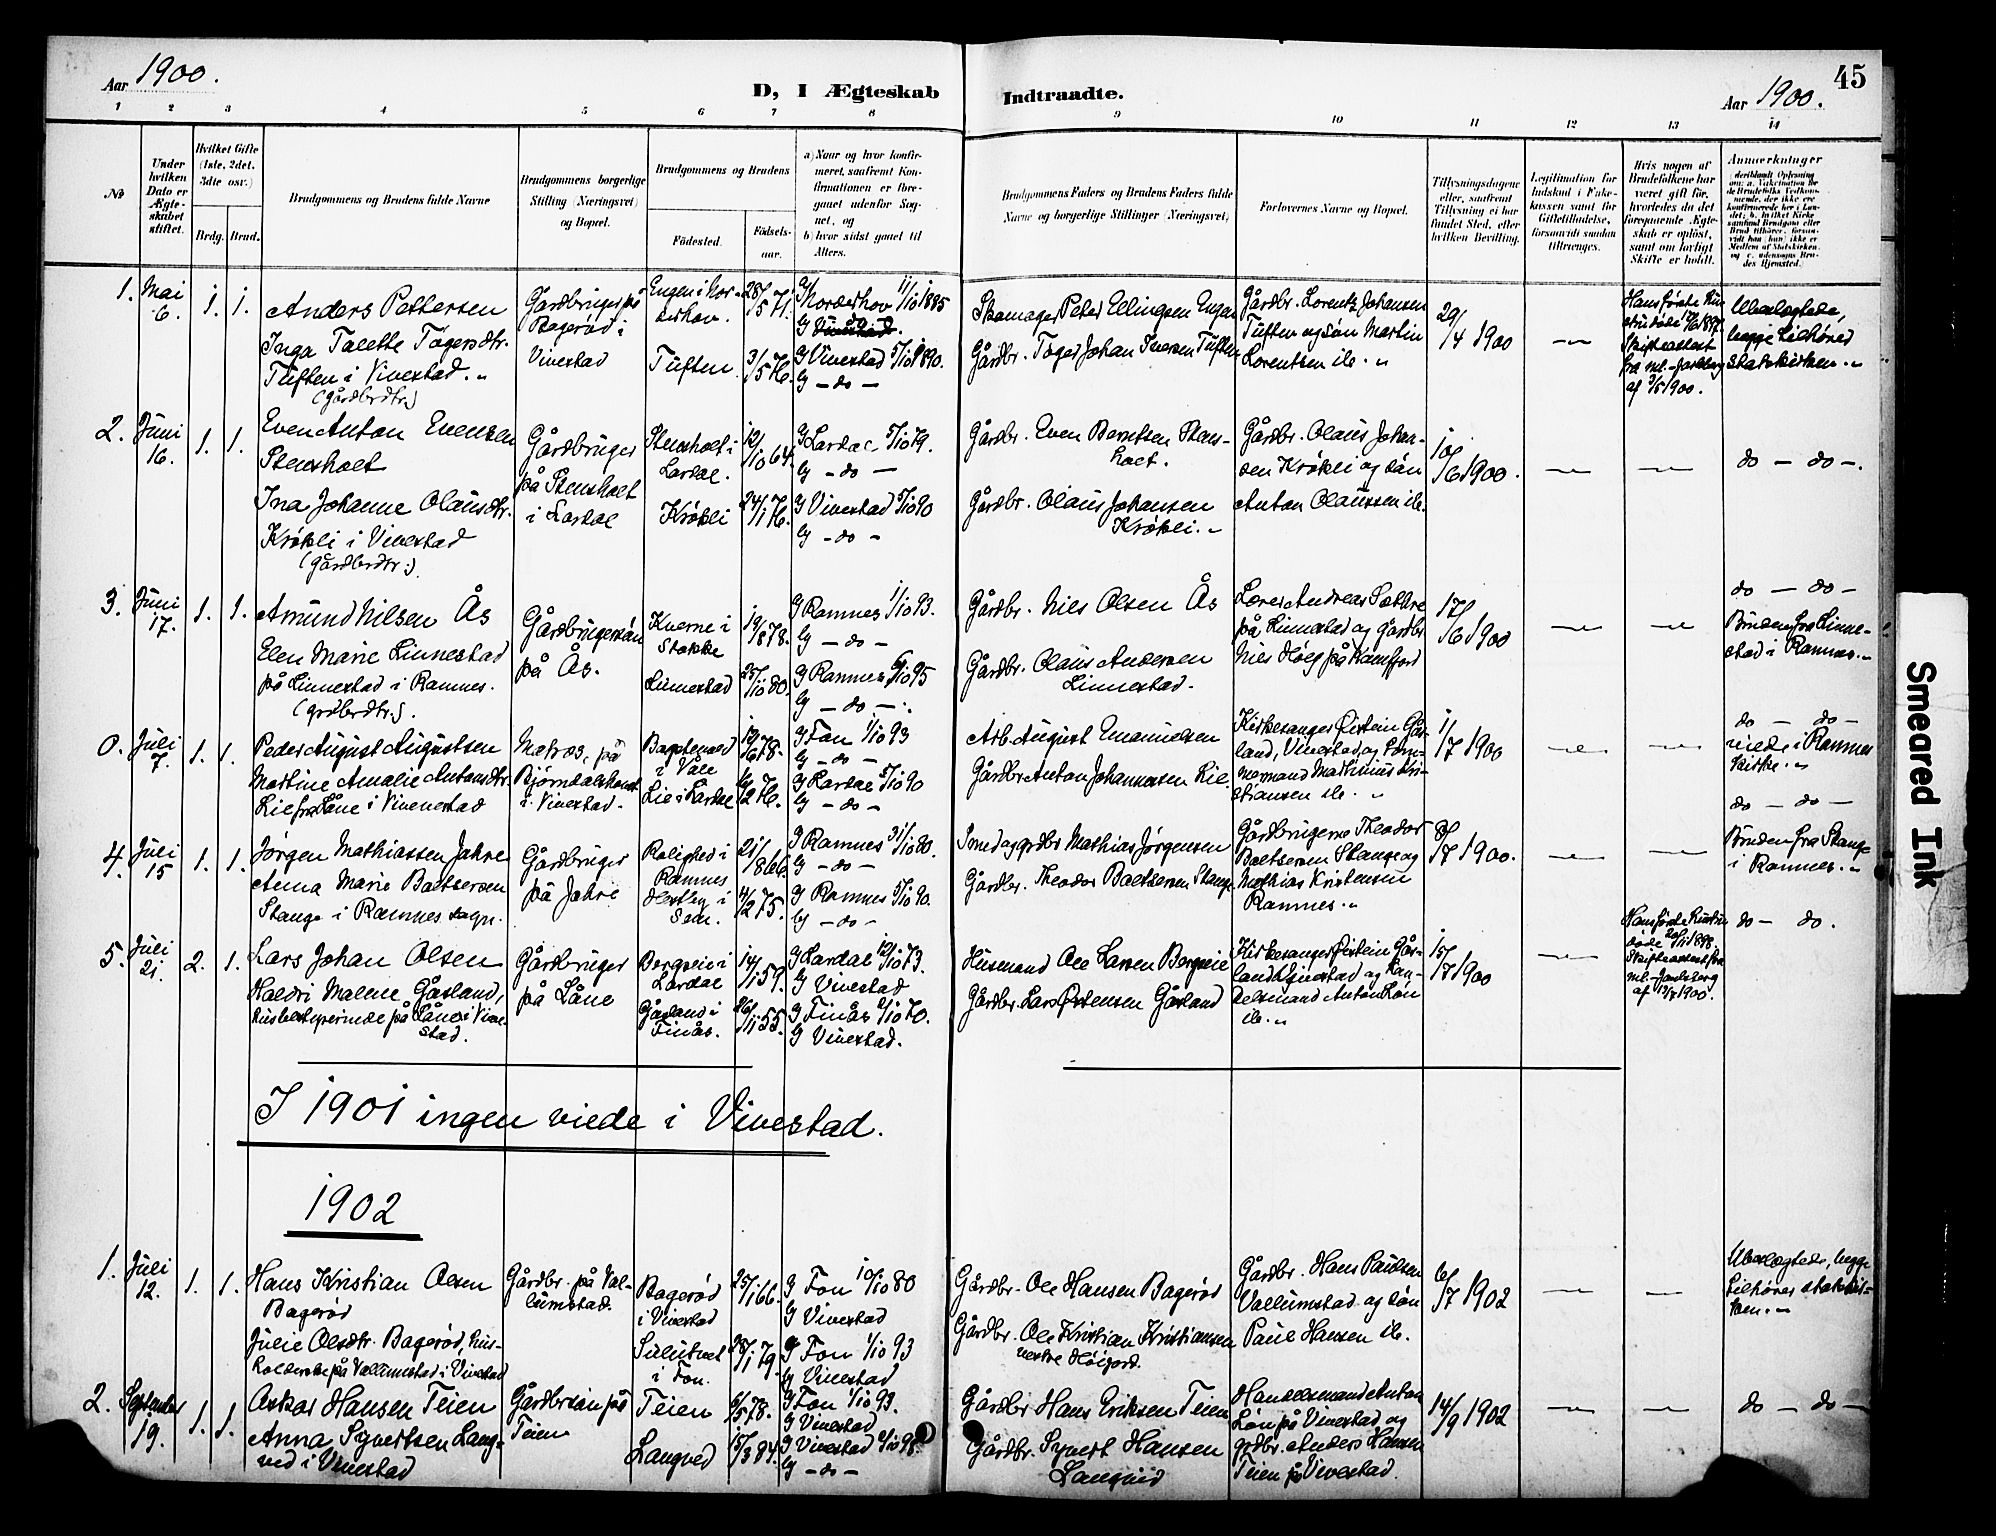 Aar 1900.
D, I Ægteskab Indtraadte.
Aar 1900.
45
1 2 3 4 5 6 7 8 9 10 11 12 13 14
No
Under hvilken Dato er Ægteskabet stiftet.
Hvilket Gifte (1ste, 2det, 3die osv.)
Brdg. Brud.
Brudgommens og Brudens fulde Navne
Brudgommens borgerlige Stilling (Næringsvei) og Bopæl.
Brudgommens og Brudens
Fødested.
Fødsels-aar.
a) Naar og hvor konfirmeret, saafremt Konfirmationen er foregaaet udenfor Sognet, og
b) hvor sidst gaaet til Alters.
Brudgommens Faders og Brudens Faders fulde Navne og borgerlige Stillinger (Næringsvei).
Forlovernes Navne og Bopæl.
Tillysningsdagene eller, saafremt Tillysning ei har fundet Sted, efter hvilken Bevilling.
Legitimation for Indskud i Enkekassen samt for Giftetilladelse, forsaavidt saadan tiltrænges.
Hvis nogen af Brudefolkene har været gift før, hvorledes da det foregaaende Ægteskab er opløst, samt om lovligt Skifte er holdt.
Anmærkninger
1. Mai 6. 1. 1.
Anders Pettersen
Inga Talette Tøgersdtr.
Tuften i Vivestad.
(gårdbrdtr.)
Gårdbruger på
Bagerød i
Vivestad
Engen i Norderhov.
28/5 71.
Tuften
3/5 76.
Norderhov 11/10 1885
G Vivestad 5/10 1890.
G - do -
Skomager Peter Ellingsen Engen
Gårdbr. Tøger Johan Iversen Tuften
Gårdbr. Lorentz Johansen
Tuften og søn Martin
Lorentsen ib.
29/4 1900
af 3/5 1900.
begge tilhører
statskirken.
2. Juni 16. 1. 1.
Even Anton Evensen
Stensholt
Ina Johanne Olausdtr.
Krøkli i Vivestad
(gårdbrdtr.)
Gårdbruger
på Stensholt
i Lardal
Stensholt i
Lardal.
12/10 64.
Krøkli
24/1 76.
G Lardal 5/10 79.
G - do -
G Vivestad 5/10 90
G - do -
Gårdbr. Even Berntsen Stensholt.
Gårdbr. Olaus Johansen
Krøkli.
Gårdbr. Olaus Johansen
Krøkli og søn
Anton Olaussen ib.
10/6 1900.
do - do -.
3. Juni 17. 1. 1.
Amund Nilsen Ås
Elen Marie Linnestad
på Linnestad i Ramnes.
(grdbrdtr.).
Gårdbrugersøn
på Ås.
Kverne i
Stokke
19/8 78.
Linnestad
25/11 80.
G Ramnes 1/10 93.
G - do -
G Ramnes 6/10 95
G - do -
Gårdbr. Niels Olsen Ås
Gårdbr. Olaus Andersen
Linnestad.
Lærer Andreas Sættre
på Linnestad og gårdbr.
Niels Høeg på Kamfjord
17/6 1900
do - do -
Bruden fra Linnestad
i Ramnes.
0. Juli 7. 1. 1.
Peder August Augustsen
Martine Amalie Antonsdtr.
Lie fra Låne i Vivestad
Matros, på
i Vivestad.
i Våle
Lie i Lardal
G Fon 1/10 93
G - do -
G Lardal 5/10 90
G - do -
Arb. August Emanuelsen
Gårdbr. Anton Johannessen Lie.
Kirkesanger Østein Gåsland, Vivestad, og
Mathinius Kristiansen ib.
1/7 1900
do - do -
viede i Ramnes
kirke.
4. Juli 15 1. 1.
Jørgen Mathiassen Jahre
Anna Marie Baltsersen
Stange i Ramnes sogn.
Gårdbruger
på Jahre
Rolighed i
Ramnes
21/1 866.
Sem.
4/2 75.
G Ramnes 31/10 80.
G - do -
G Ramnes 5/10 90.
G - do -
Smed og grdbr Mathias Jørgensen
Gårdbr. Theodor Baltsersen Stange
Gårdbrugerne Theodor
Baltsersen Stange og
Mathias Kristensen
Ramnes.
8/7 1900.
do - do -
Bruden fra Stange
i Ramnes.
5. Juli 21. 2. 1.
Lars Johan Olsen
Haldri Malene Gåsland,
husbestyrerinde på Låne i Vivestad.
Gårdbruger
på Låne
Bergsei i
Lardal
14/1 59.
Gåsland i
Finås.
G Lardal 12/10 73.
G Vivestad
G Finås 2/10 70.
G Vivestad.
Husmand Ole Larsen Bergseie
Gårdbr. Lars Østensen Gåsland
Kirkesanger Østein Gåsland,
Vivestad og Handelsmand Anton Løn
ib.
15/7 1900
do - do.
I 1901 ingen viede i Vivestad.
1902
1. Juli 12. 1. 1.
Hans Kristian Olsen
Bagerød
Julie Olsdtr. Bagerød, husholderske
på Vallumstad i Vivestad
Gårdbr. på Vallumstad.
Bagerød
i Vivestad
25/1 66.
i Fon.
G Fon 10/10 80
G Vivestad
G Fon 1/10 93
G Vivestad
Gårdbr. Ole Hansen Bagerød
Gårdbr. Ole Kristian Kristiansen
Gårdbr. Hans Paulsen
Vallumstad og søn
Paul Hansen ib.
6/7 1902
begge
tilhører statskirken.
2. September 19. 1. 1.
Oskar Hansen Teien
Anna Syvertsen Langved
i Vivestad
Gårdbrsøn på
Teien
Teien
6/5 78.
Langved
15/3 84.
G Fon 1/10 93.
G Vivestad
G Vivestad 2/10 98.
G - do -
Gårdbr Hans Eriksen Teien
Gårdbr. Syvert Hansen
Langved
Handelsmand Anton
Løn på Vivestad og
grdbr. Anders Hansen
Teien på Vivestad.
14/9 1902
do - do -
Smeared Ink